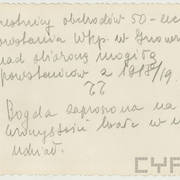 obchodów 50-lecia
powstania Wkp. w
nad zbiorową mogiłą
powstańców z 1918/19
Bogda zaproszona na
uroczystości brała w n
udział.
CYR